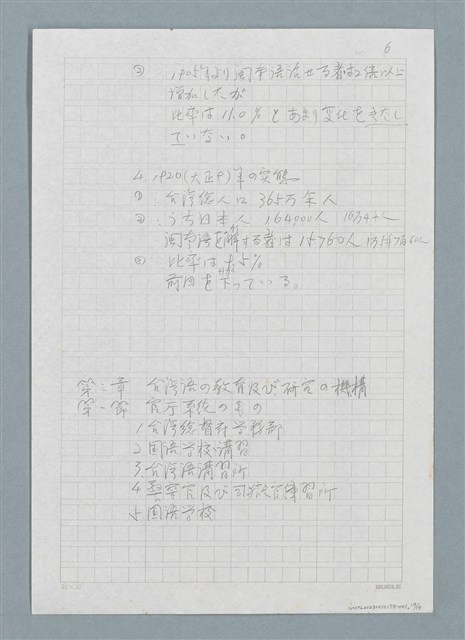 6
③ 1905年より閩南語話せる者は2倍以上
増加したが
比率は11.0%とあまり変化をきたし
ていない。
4. 1920(大正9)年の実態
① 台湾総人口 365万余人
②. うち日本人 164000人
閩南語を解する者は 15760人
③ 比率は 9.5%
前回を下っている。
第三章 台湾語の教育及び研究の機構
第一節 官庁系統のもの
1 台湾総督府学務部
2 国語学校講習
3 台湾語講習所
4 警察官及び司獄官練習所
5 国語学校